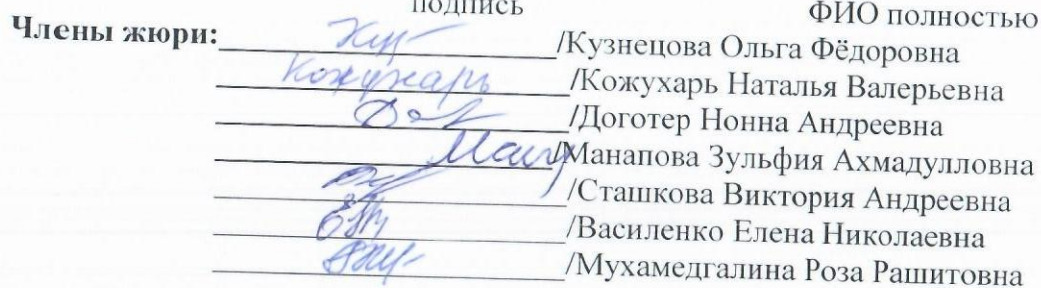 подпись ФИО полностью
Члены жюри: /Кузнецова Ольга Фёдоровна
Кожухарь /Кожухарь Наталья Валерьевна
/Доготер Нонна Андреевна
/Манапова Зульфия Ахмадулловна
/Сташкова Виктория Андреевна
/Василенко Елена Николаевна
/Мухамедгалина Роза Рашитовна